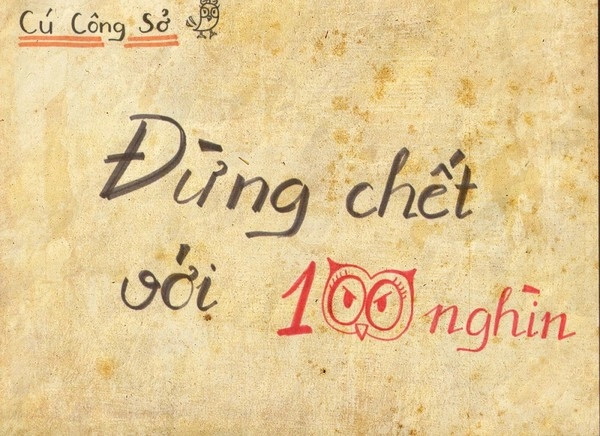 Cú Công Sở
Đừng chết
với 100 nghìn